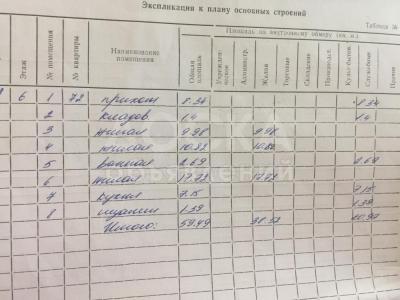 Экспликация к плану основных строений
Таблица №
Площадь по внутреннему обмеру (кв. м.)
Этаж № помещения № квартиры Наименование помещения Общая площадь Учрежденческое Админстр. Жилая Торговые Складские Производст. Культ-бытов. Служебное Прочие
6 1 72 прихож 8.34 8.34
2 кладов. 1.4 1.4
3 жилая 9.98 9.98
4 жилая 10.82 10.82
5 ванная 2.69 2.69
6 жилая 17.72 17.72
7 кухня 7.15 7.15
8 1.39 1.39
Итого: 59.49 38.52
ДОСКА
ОБЪЯВЛЕНИЙ